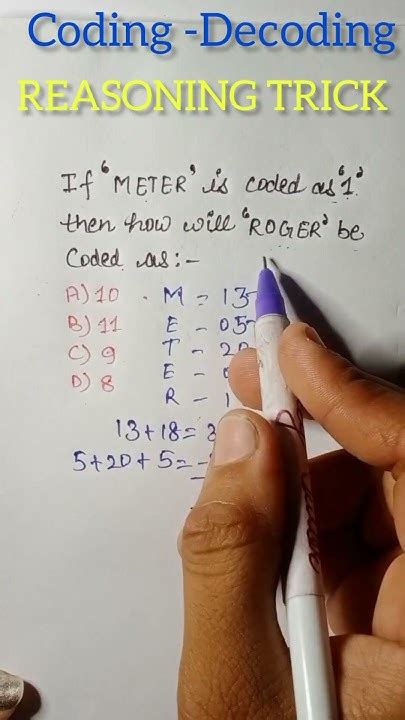 Coding -Decoding
REASONING TRICK
If 'METER' is coded as '1'
then how will 'ROGER' be
Coded as:-
A) 10
B) 11
C) 9
D) 8
M = 13
E - 05
T - 20
E -
R - 1
13+18=3
5+20+5=